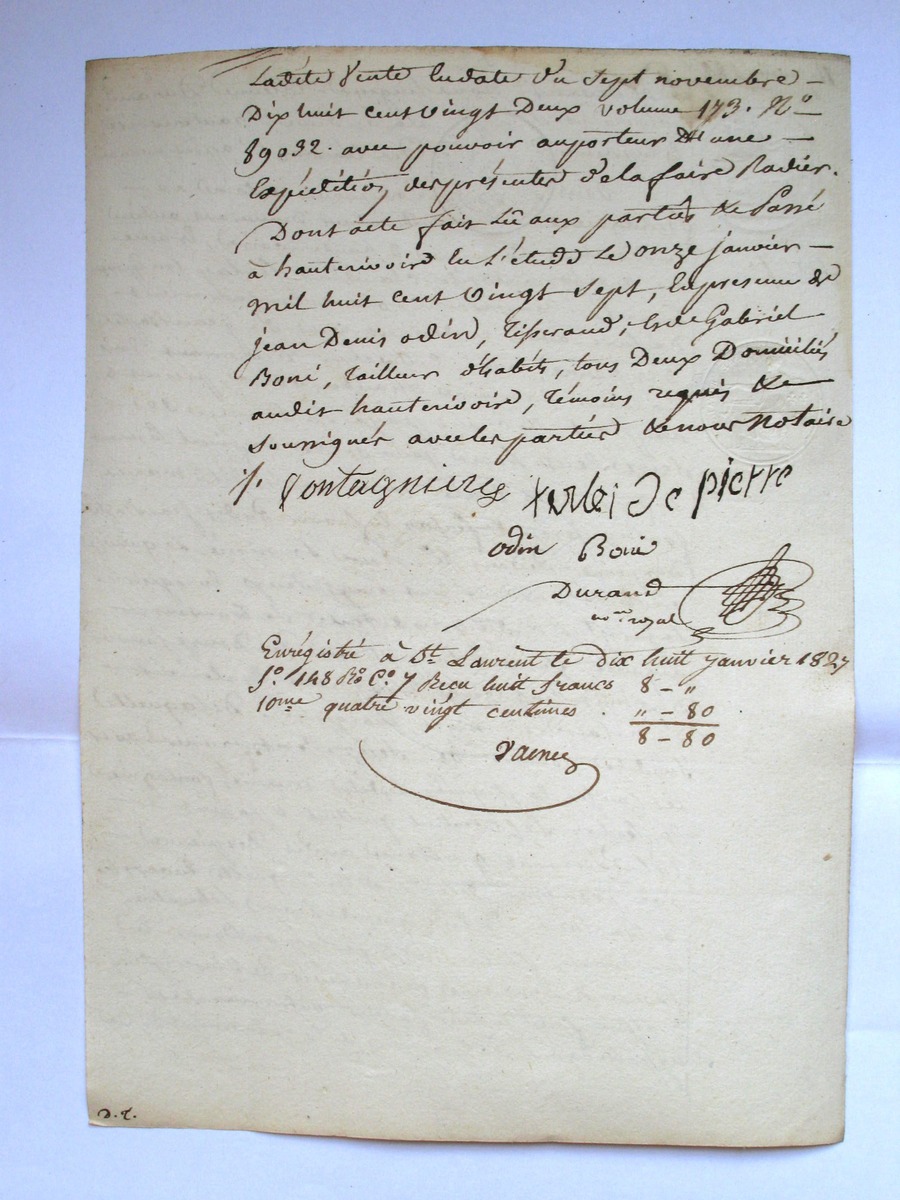 Ladite Vente En date du Sept novembre –
Dix huit cent vingt Deux volume 173. N°
89032. avec pouvoir au porteur D'une –
Expédition des présentes de la faire Radier.
Dont acte fait Lû aux parties & Passé
à hauterivoire En L'étude Le onze janvier –
mil huit cent vingt Sept, En présence de
jean Denis odin, Tisserand, & de Gabriel
Boni, Tailleur d'habits, tous Deux Domiciliés
audit hauterivoire, témoins requis &
Soussignés avec les parties & nous Notaire
odin Boni
Durand
no.re royal
Enrégistré à St. Laurent le Dix huit janvier 1827
f° 148 R° C° 7 Recu huit francs 8 - "
10me quatre vingt centimes . " - 80
8 - 80
D.T.